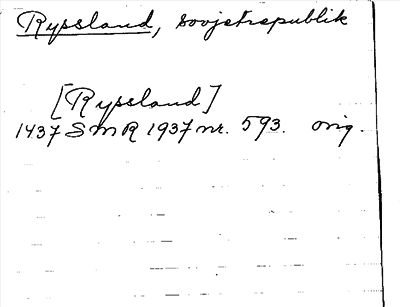 Ryssland, sovjetrepublik
[Ryssland]
1437 SMR 1937 nr. 593. orig.